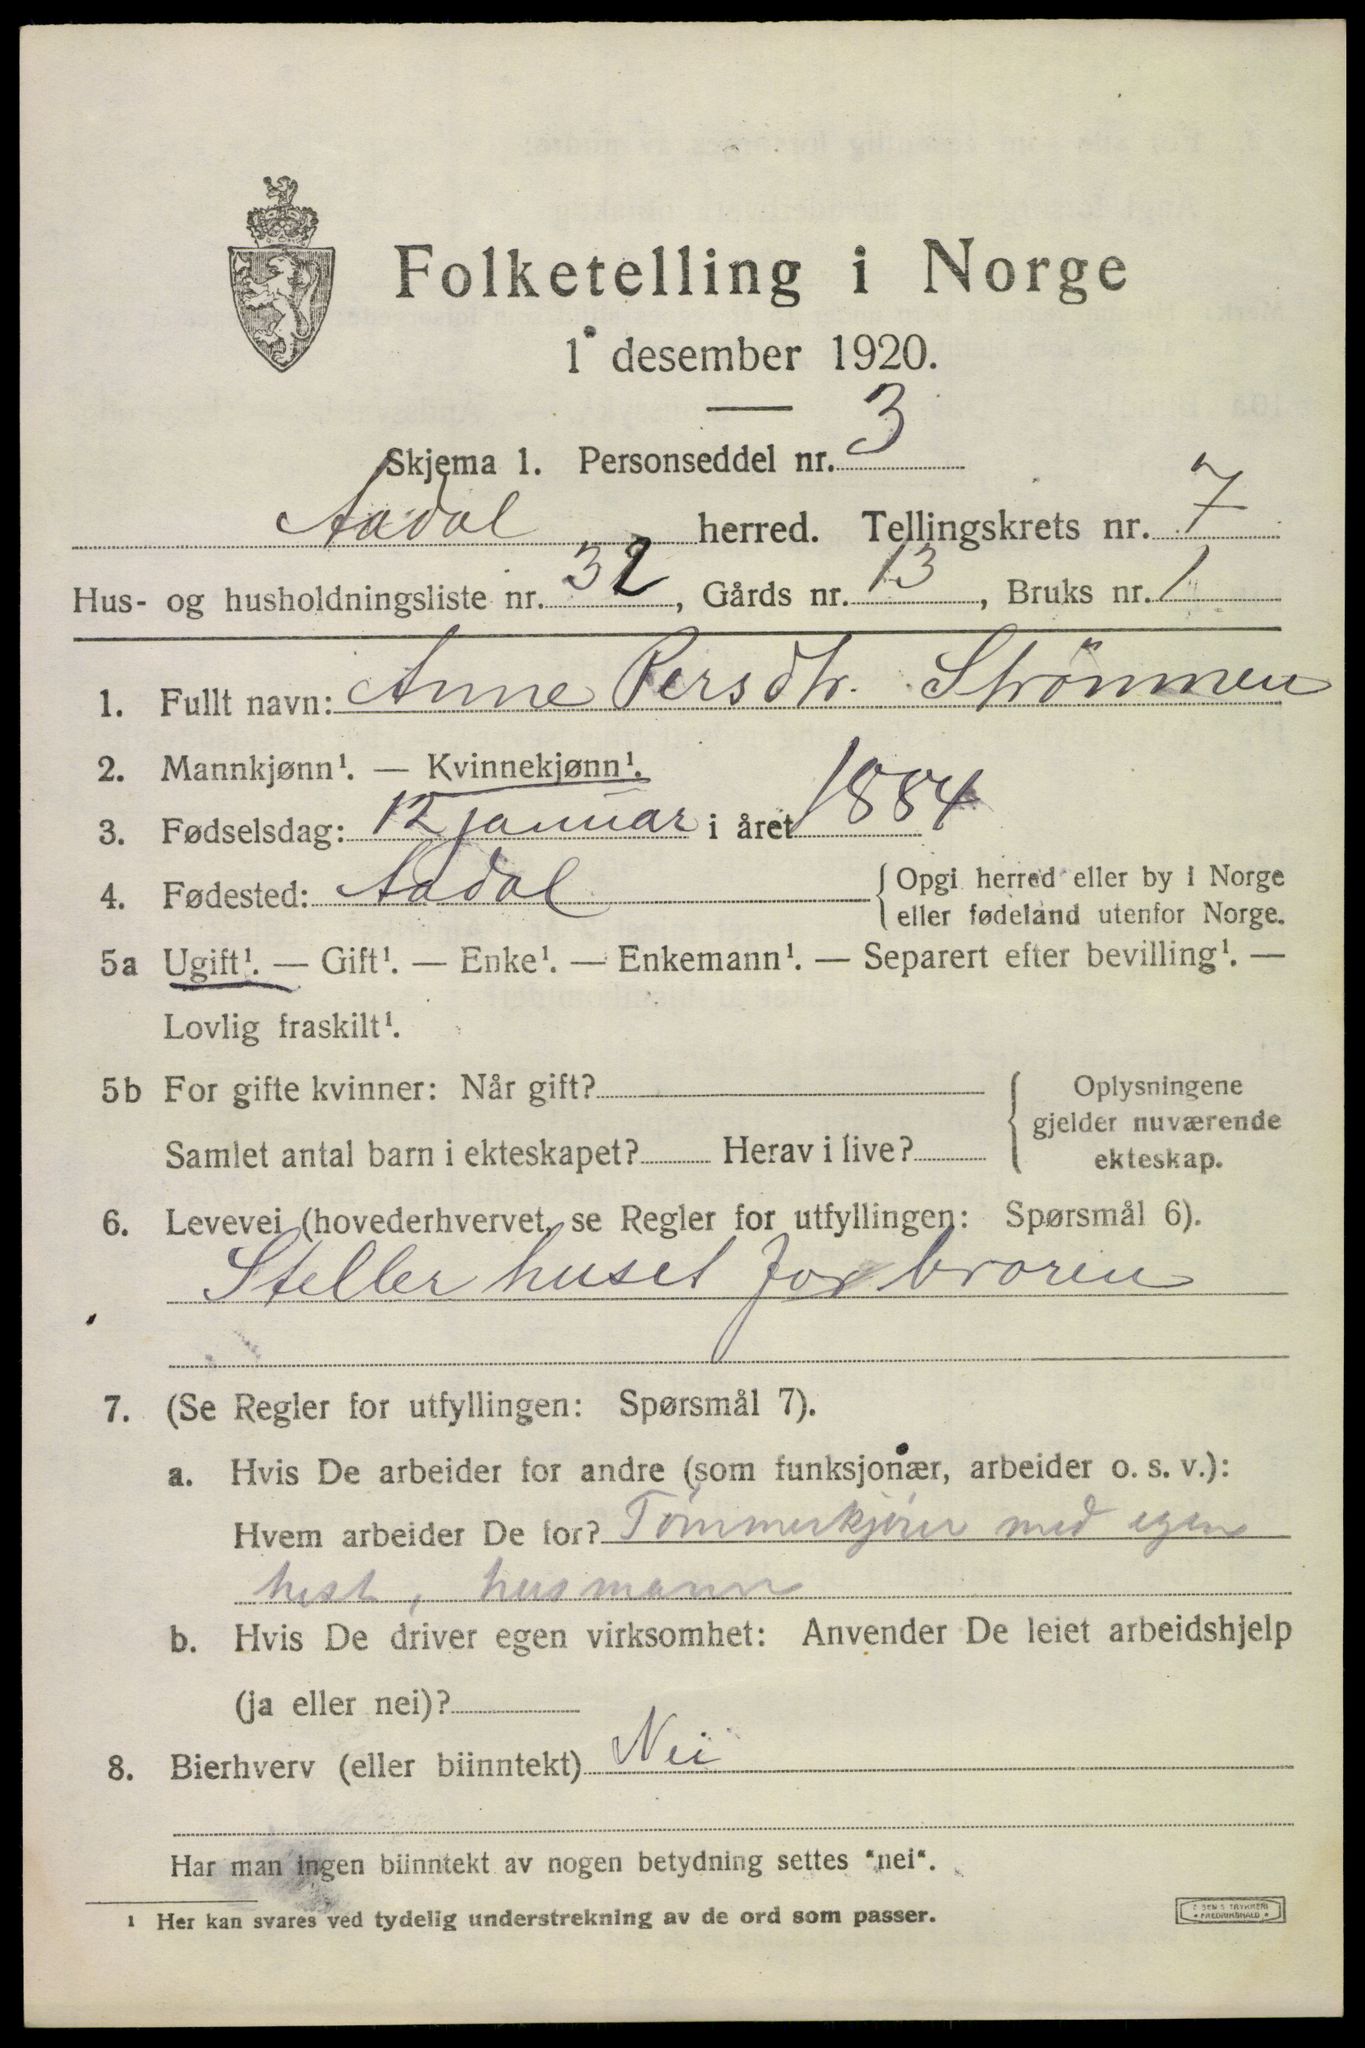 Folketelling i Norge
1 desember 1920.
Skjema 1. Personseddel nr. 3
Aadal herred. Tellingskrets nr. 7
Hus- og husholdningsliste nr. 32, Gårds nr. 13, Bruks nr. 1
1. Fullt navn: Anne Persdtr. Strönmen
2. Mannkjønn¹. — Kvinnekjønn¹.
3. Fødselsdag: 12 januar i året 1884
4. Fødested: Aadal {Opgi herred eller by i Norge
eller fødeland utenfor Norge.
5a Ugift¹. — Gift¹. — Enke¹. — Enkemann¹. — Separert efter bevilling¹. —
Lovlig fraskilt¹.
5b For gifte kvinner: Når gift? {Oplysningene
gjelder nuværende
Samlet antal barn i ekteskapet? Herav i live? ekteskap.
6. Levevei (hovederhvervet, se Regler for utfyllingen: Spørsmål 6).
Steller huset for broren
7. (Se Regler for utfyllingen: Spørsmål 7).
a. Hvis De arbeider for andre (som funksjonær, arbeider o. s. v.):
Hvem arbeider De for? Tømmerkjører med egen
hest, husmann
b. Hvis De driver egen virksomhet: Anvender De leiet arbeidshjelp
(ja eller nei)?
8. Bierhverv (eller biinntekt) Nei
Har man ingen biinntekt av nogen betydning settes "nei".
¹ Her kan svares ved tydelig understrekning av de ord som passer.